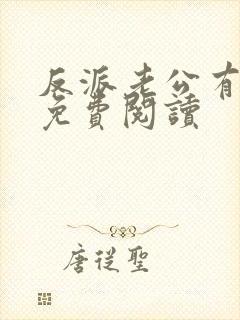 反派老公有
免費閱讀
唐從聖